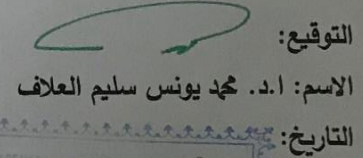 التوقيع:
الاسم: ا.د. محمد يونس سليم العلاف
التاريخ: